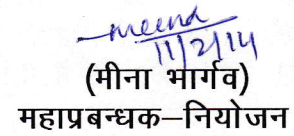 meena
11/2/14
(मीना भार्गव)
महाप्रबन्धक–नियोजन